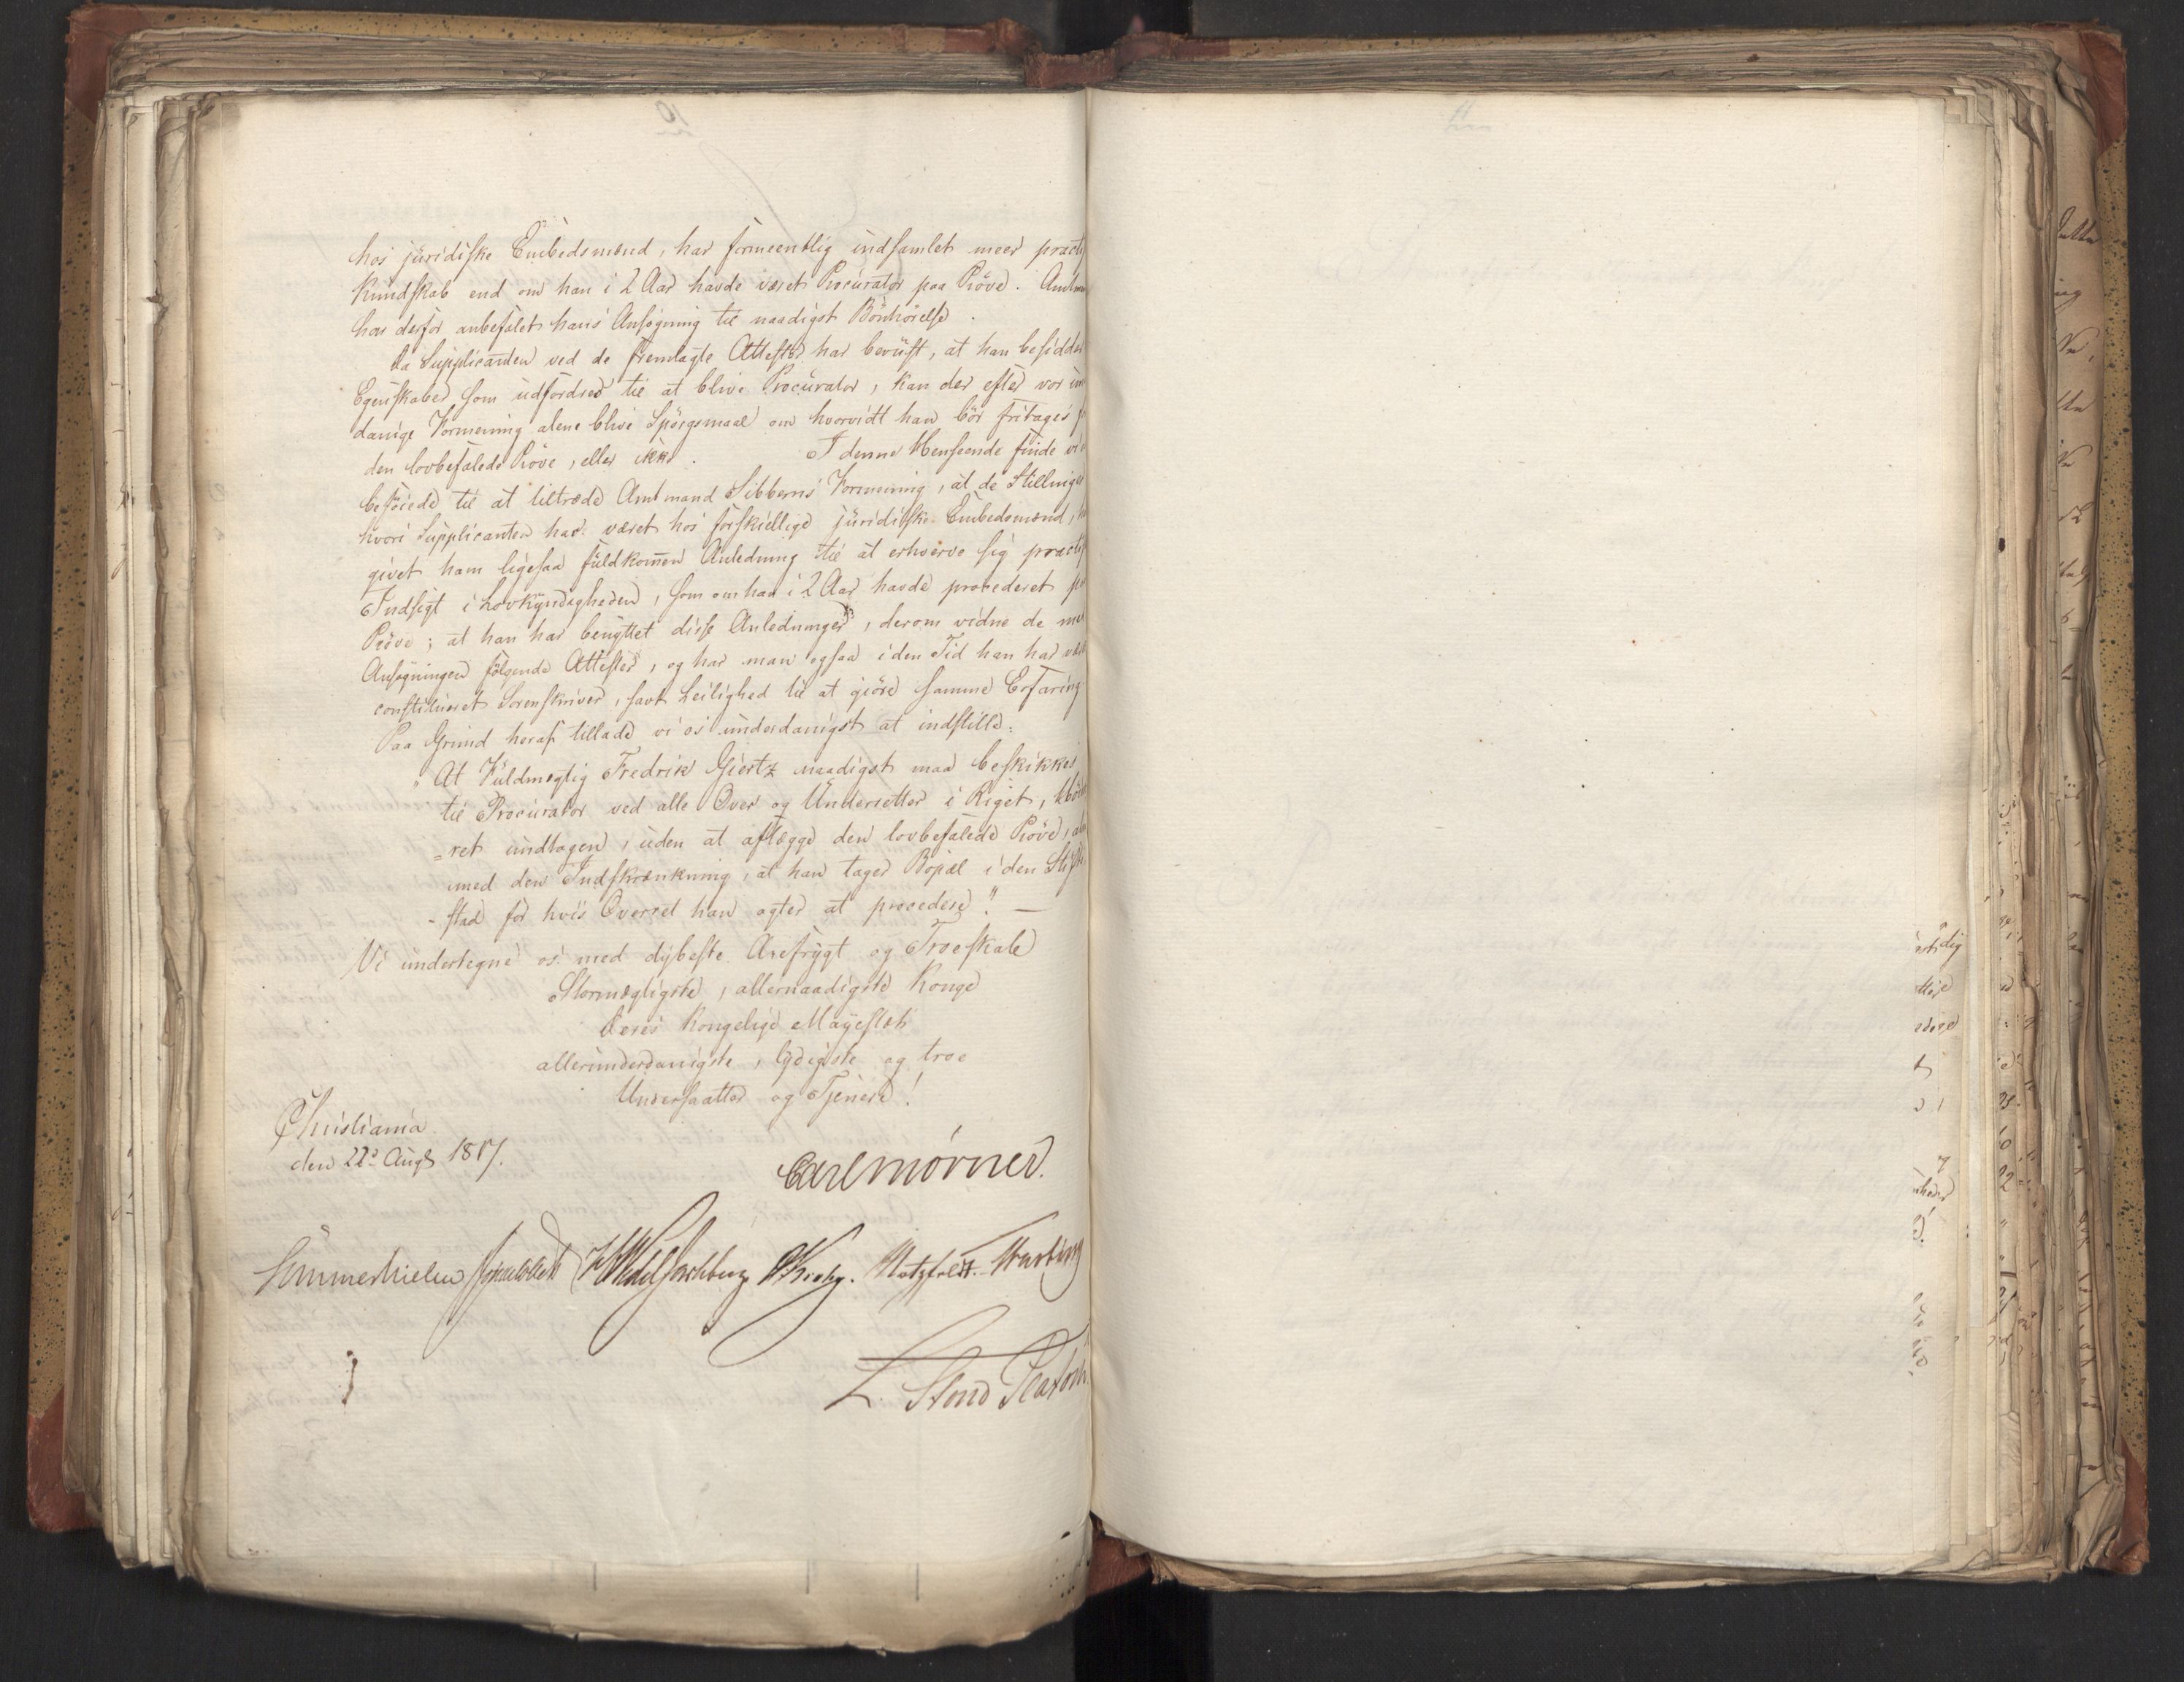 10
hos juridiske Embedsmænd, har formeentlig indsamlet meer pract
Kundskab end om han i 2 Aar havde været Procurator paa Prøve. Amtm
har derfor anbefalet hans Ansøgning til naadigst Bønhørelse.
Da Supplicanten ved de fremlagte Attester har beviist, at han besidder
Egenskaber som udfordres til at blive Procurator, kan der efter vor un
danige Formening alene blive Spørgsmaal om hvorvidt han bør fritages f
den lovbefalede Prøve, eller ikke. I denne Henseende finde vi
beføiede til at tiltræde Amtmand Sibberns Formening, at de Stillinger
hvori Supplicanten har været hos forskiellige juridiske Embedsmænd,
givet ham ligesaa fuldkom̄en Anledning til at erhverve sig practis
Indsigt i Lovkyndigheden, som om han i 2 Aar havde procederet p
Prøve; at han har benyttet disse Anledninger, derom vidne de me
Ansøgningen følgende Attester, og har man ogsaa i den Tid han har vær
constitueret Sorenskriver, havt Leilighed til at giøre samme Erfaring
Paa Grund heraf tillade vi os underdanigst at indstille:
"At Fuldmægtig Fredrik Giertz naadigst maa beskikkes
til Procurator ved alle Over og Underretter i Riget, Høie
=ret undtagen, uden at aflægge den lovbefalede Prøve, al
med den Indskrænkning, at han tager Bopæl i den Stifts
-stad for hvis Overret han agter at procedere". —
Vi undertegne os med dybeste Ærefrygt og Troeskab
Stormægtigste, allernaadigste Konge
Deres Kongelige Mayestæts
allerunderdanigste, lydigste og troe
Undersaatter og Tjenere!
Christiania
den 22de Augt 1817.
Carl Mörner.
Sommerhielm HWedel Jarlsberg PKrohg. Motzfeldt. Hartvig
L. Stoud Platou
11